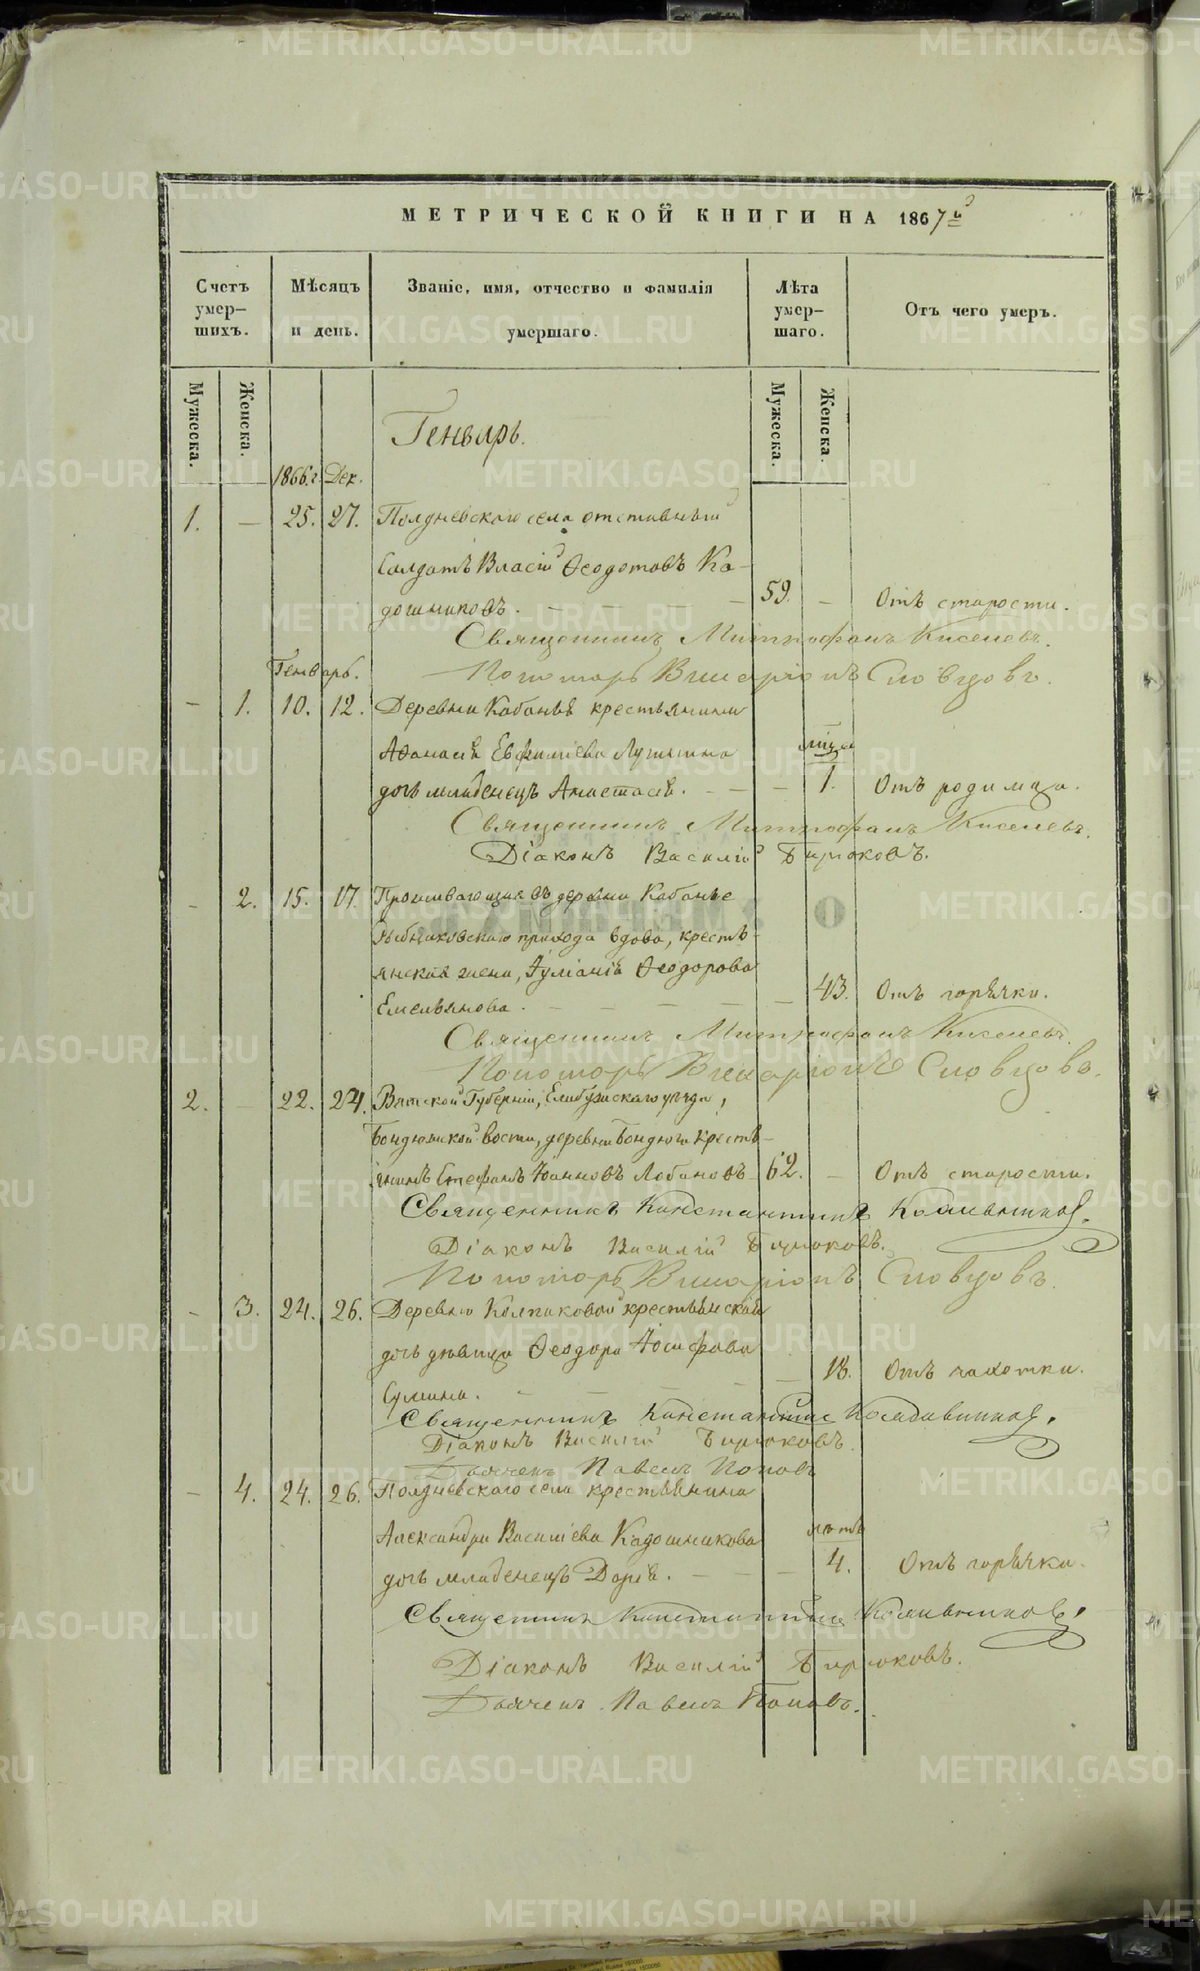 МЕТРИЧЕСКОЙ КНИГИ НА 1867й
Счетъ умер-шихъ.
Мѣсяцъ и день.
Званіе, имя, отчество и фамилія умершаго.
Лѣта умер-шаго.
Отъ чего умеръ.
Мужеска. Женска. Мужеска. Женска.
Генварь.
1866 г. Дек.
1. — 25. 27. Полдневскаго села отставный
Солдатъ Власій Ѳеодотовъ Ка-
дошниковъ. — 59. — Отъ старости.
Священникъ Митрофанъ Киселевъ.
Пономарь Виссаріонъ Словцовъ.
Генварь.
— 1. 10. 12. Деревни Кабаньѣ крестьянина
Аѳанасія Евфиміева
дочь младенецъ Анастасія. — 1. Отъ родимца.
Священникъ Митрофанъ Киселевъ.
Діаконъ Василій Бирюковъ.
— 2. 15. 17. Проживающая въ деревни Кабанье
прихода вдова, кресть-
янская жена, Іуліанія Ѳеодорова
Емельянова. — 43. Отъ горячки.
Священникъ Митрофанъ Киселевъ.
Пономарь Виссаріонъ Словцовъ.
2. — 22. 24. Вятской Губерніи, Елабужскаго уѣзда,
Бондюжской вости, деревни Бондюги кресть-
янинъ Стефанъ Іоанновъ Лобановъ 62. — Отъ старости.
Священникъ Константинъ
Діаконъ Василій Бирюковъ.
Пономарь Виссаріонъ Словцовъ.
— 3. 24. 26. Деревни Колпаковой крестьянская
дочь дѣвица Ѳеодора Іосифова
— 18. Отъ чахотки.
Священникъ Константинъ
Діаконъ Василій Бирюковъ.
Дьячекъ Павелъ Поповъ
— 4. 24. 26. Полдневскаго села крестьянина
Александра Василіева Кадошникова
лѣтъ
дочь младенецъ Дарія. — 4. Отъ горячки.
Священникъ Константинъ
Діаконъ Василій Бирюковъ.
Дьячекъ Павелъ Поповъ.
METRIKI.GASO-URAL.RU